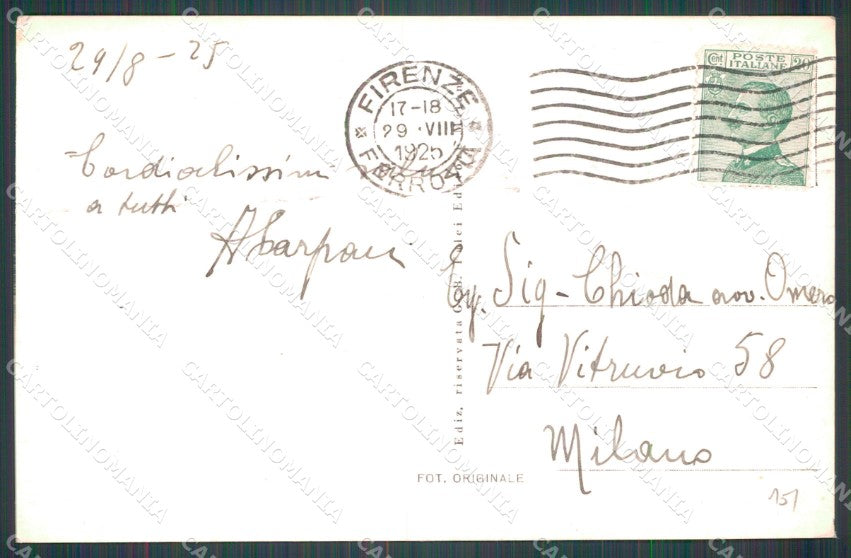 29/8-25
FIRENZE
17-18
29.VIII
1925
FERROVIA
Cent POSTE 20
ITALIANE
Cordialissimi saluti
a tutti
Eg. Sig- Chioda avv. Omero
Via Vitruvio 58
Milano
Ediz. riservata G. B. Falci Edit
FOT. ORIGINALE
151
CARTOLINOMANIA